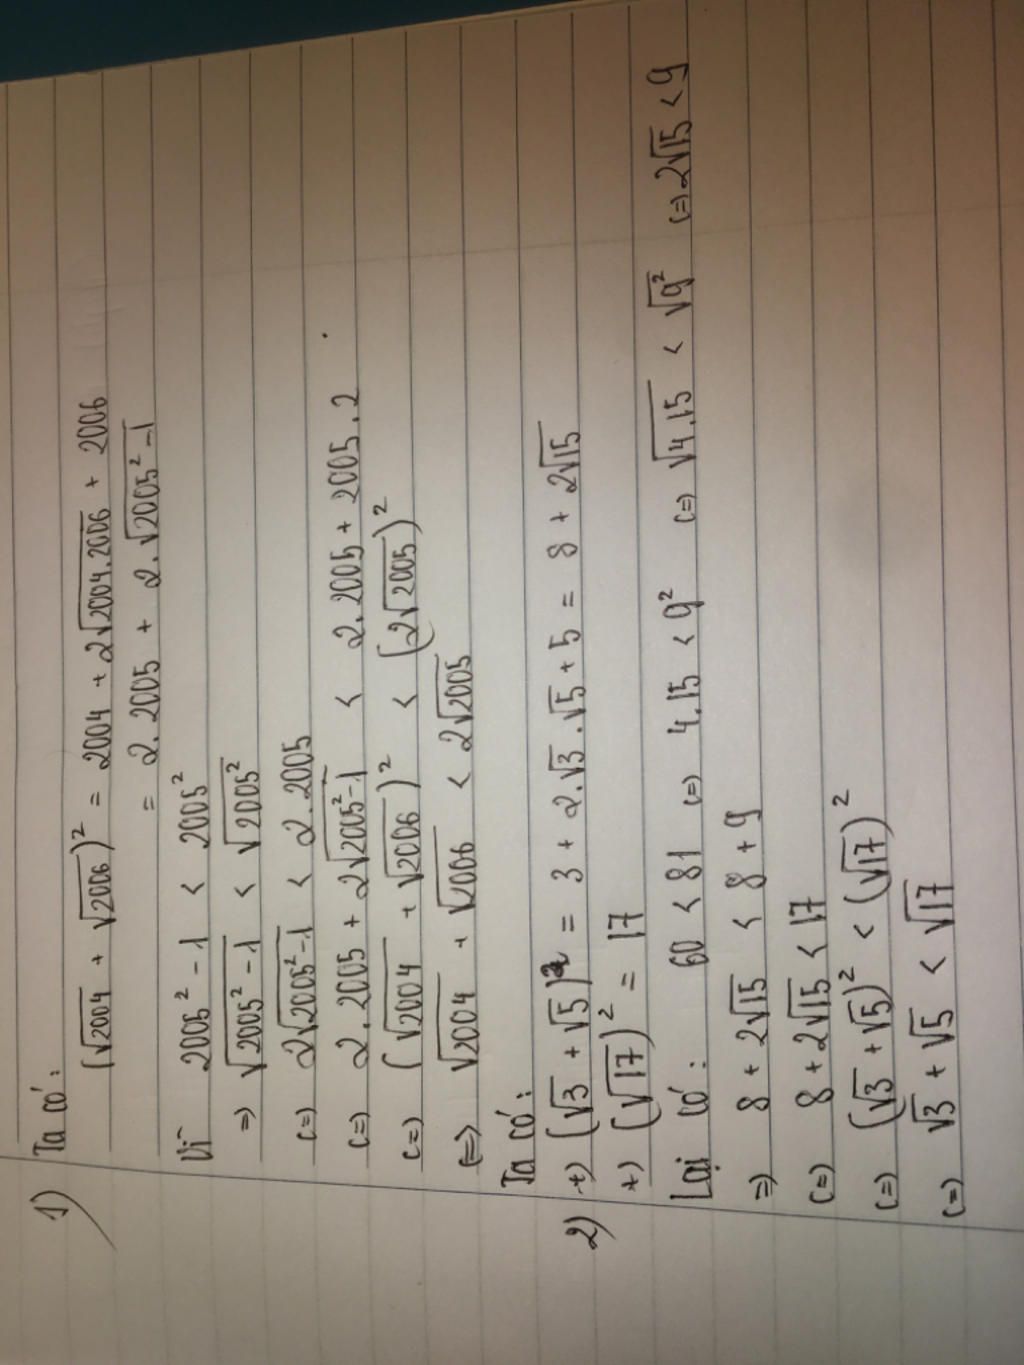 1) Ta có:
(√2004 + √2006)² = 2004 + 2√2004.2006 + 2006
= 2.2005 + 2.√2005²-1
Vì 2005² - 1 < 2005²
=> √2005² - 1 < √2005²
(=) 2√2005² - 1 < 2.2005
(=) 2.2005 + 2√2005²-1 < 2.2005 + 2005.2
(=) (√2004 + √2006)² < (2√2005)²
(=) √2004 + √2006 < 2√2005
Ta có:
2) +) (√3 + √5)² = 3 + 2.√3.√5 + 5 = 8 + 2√15
+) (√17)² = 17
Lại có: 60 < 81 (=) 4.15 < 9² (=) √4.15 < √9² (=) 2√15 < 9
=) 8 + 2√15 < 8 + 9
(=) 8 + 2√15 < 17
(=) (√3 + √5)² < (√17)²
(=) √3 + √5 < √17